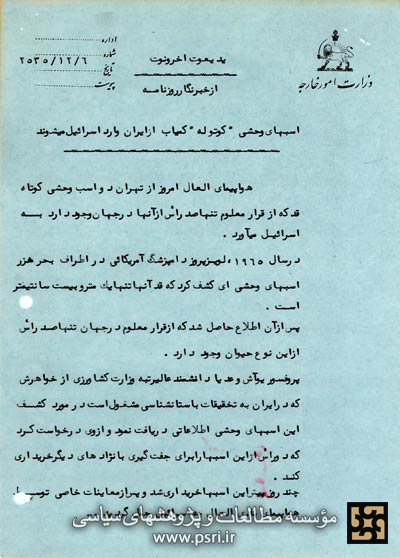 اداره
شماره
تاریخ ۲۵۳۵/۱۲/۶
پیوست
وزارت امور خارجه
یدیعوت اخرونوت
از خبرنگار روزنامه
اسبهای وحشی "کوتوله" کمیاب از ایران وارد اسرائیل میشوند
هواپیمای العال امروز از تهران دو اسب وحشی کوتاه
قد که از قرار معلوم تنها صد رأس از آنها در جهان وجود دارد بـه
اسرائیل میآورد .
در سال ۱۹۶۵ ، لویز فیروز دامپزشگ آمریکائی در اطراف بحر خزر
اسبهای وحشی ای کشف کرد که قد آنها تنها یك متر و بیست سانتیمتر
است .
پس از آن اطلاع حاصل شد که از قرار معلوم در جهان تنها صد رأس
از این نوع حیوان وجود دارد .
پروفسور یوآش وعدیا دانشمند عالیرتبه وزارت کشاورزی از خواهرش
که در ایران به تحقیقات باستانشناسی مشغول است در مورد کشف
این اسبهای وحشی اطلاعاتی دریافت نمود و از وی درخواست کرد
که دو رأس از این اسبها را برای جفت گیری با نژاد های دیگر خریداری
کند .
چند روز پیش این اسبها خریداری شد و پس از معاینات خاصی توسط
هواپیمای العال
موسسه مطالعات و پژوهشهای سیاسی
www.psri.ir